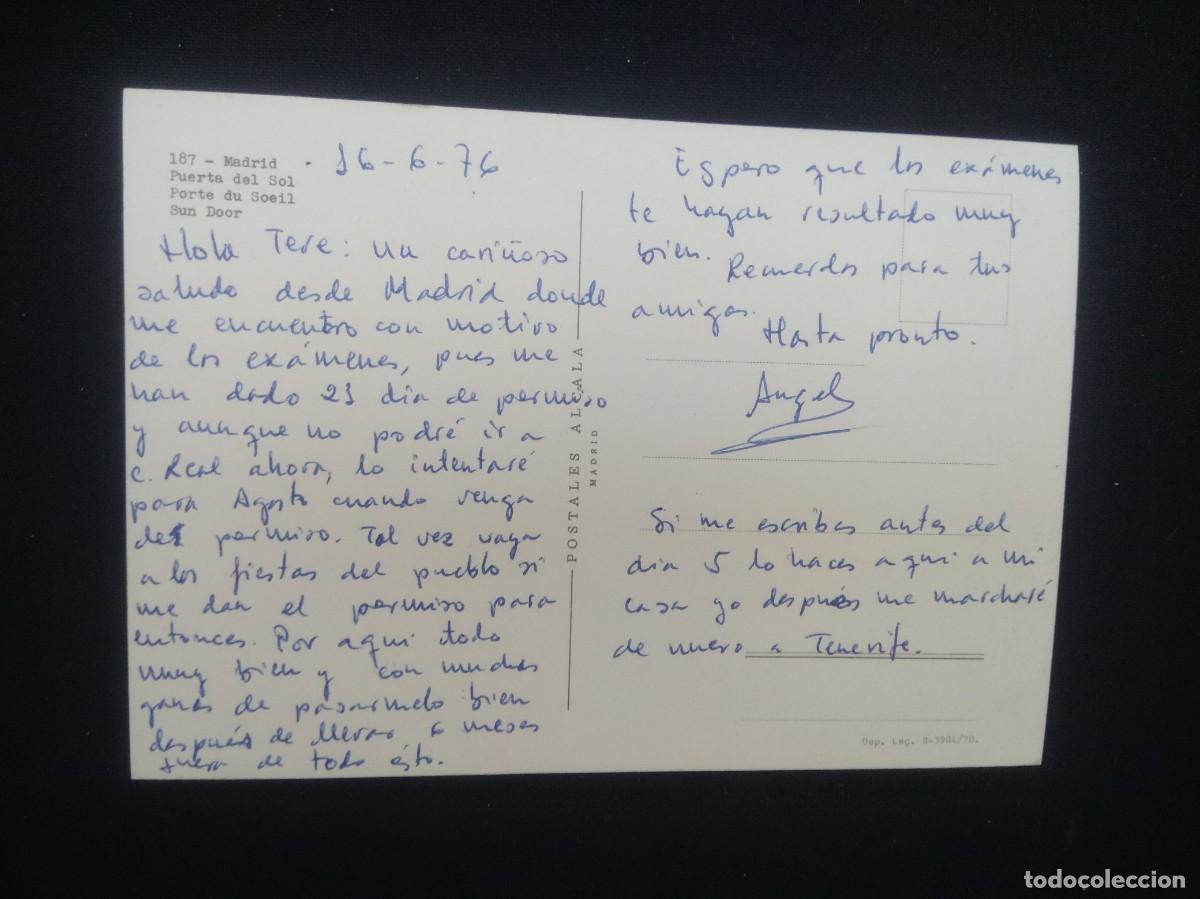 187 - Madrid
Puerta del Sol
Porte du Soeil
Sun Door
16-6-76
Hola Tere: un cariñoso
saludo desde Madrid donde
me encuentro con motivo
de los exámenes, pues me
han dado 21 día de permiso
y aunque no podré ir a
C. Real ahora, lo intentaré
para Agosto cuando venga
de permiso. Tal vez vaya
a las fiestas del pueblo si
me dan el permiso para
entonces. Por aqui todo
muy bien y con muchas
ganas de pasarmelo bien
después de llevar 6 meses
fuera de todo ésto.
POSTALES ALCALA
MADRID
Espero que los exámenes
te hayan resultado muy
bien. Recuerdos para tus
amigas.
Hasta pronto.
Angel
Si me escribes antes del
dia 5 lo haces aqui a mi
casa yo después me marcharé
de nuevo a Tenerife.
Dep. Leg. B-3904/70.
todocoleccion